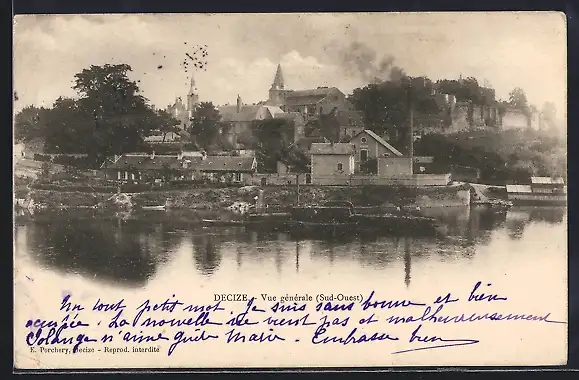 DECIZE - Vue générale (Sud-Ouest)
Un tout petit mot. Je suis sans bonne et bien
occupée. La nouvelle ne vient pas et malheureusement
Solange n'aime guère Marie. Embrasse bien
E. Perchery, Decize - Reprod. interdite